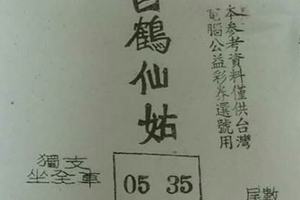 本參考資料僅供台灣
電腦公益彩券選號用
白鶴仙姑
獨支
坐全車
05 35
尾數